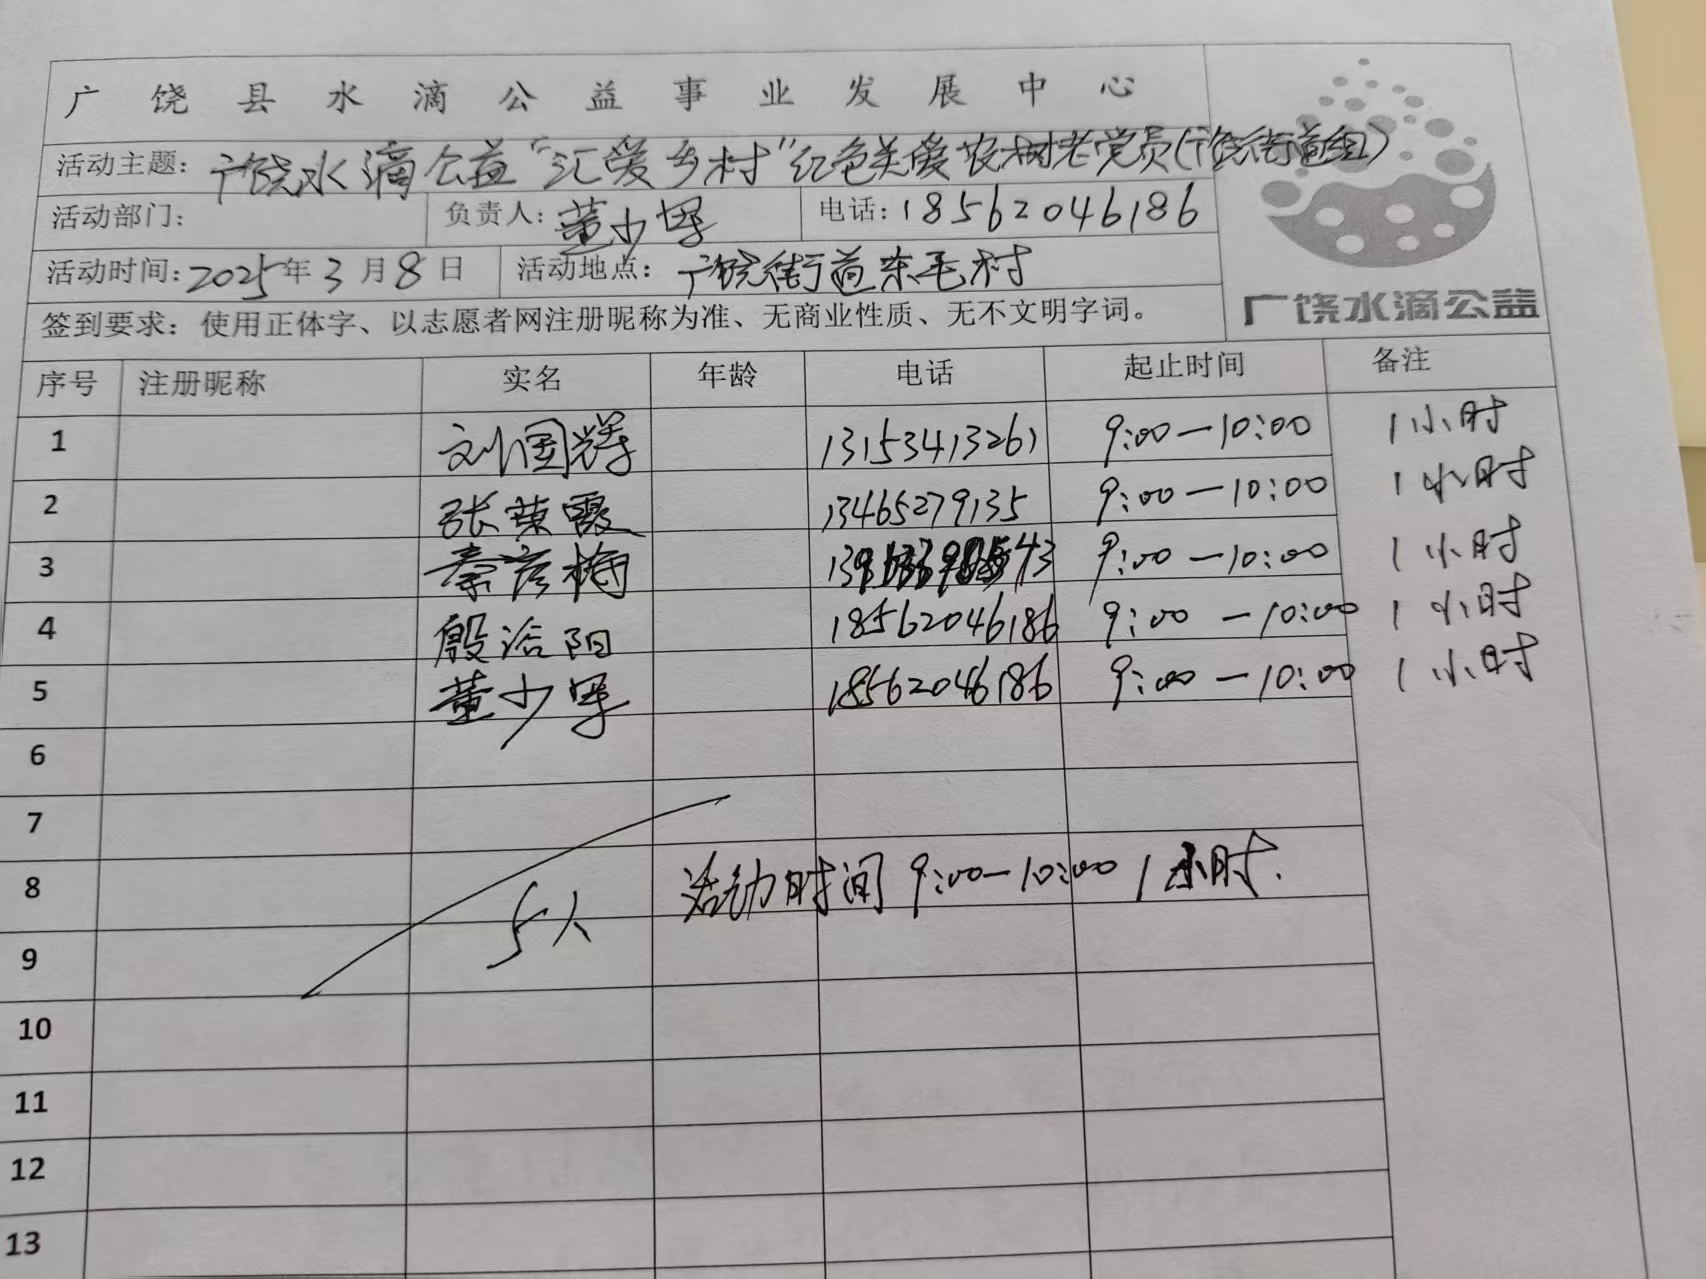 广饶县水滴公益事业发展中心
活动主题：广饶水滴公益“汇爱乡村”红色关爱农村老党员(广饶街道组)
活动部门： 负责人：董少军 电话：18562046186
活动时间：2025年3月8日 活动地点：广饶街道东毛村
签到要求：使用正体字、以志愿者网注册昵称为准、无商业性质、无不文明字词。
广饶水滴公益
序号 注册昵称 实名 年龄 电话 起止时间 备注
1 刘国辉 13153413261 9:00—10:00 1小时
2 张荣霞 13465279135 9:00—10:00 1小时
3 秦彦梅 9:00—10:00 1小时
4 殷浛阳 18562046186 9:00—10:00 1小时
5 董少军 18562046186 9:00—10:00 1小时
6
7
8 活动时间 9:00—10:00 1小时.
5人
9
10
11
12
13